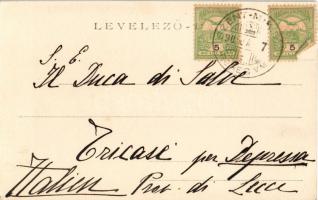 LEVELEZŐ-
5
5
S. E.
Il Duca di Salve
Tricase per Depressa
Italien Prov. di Lecce